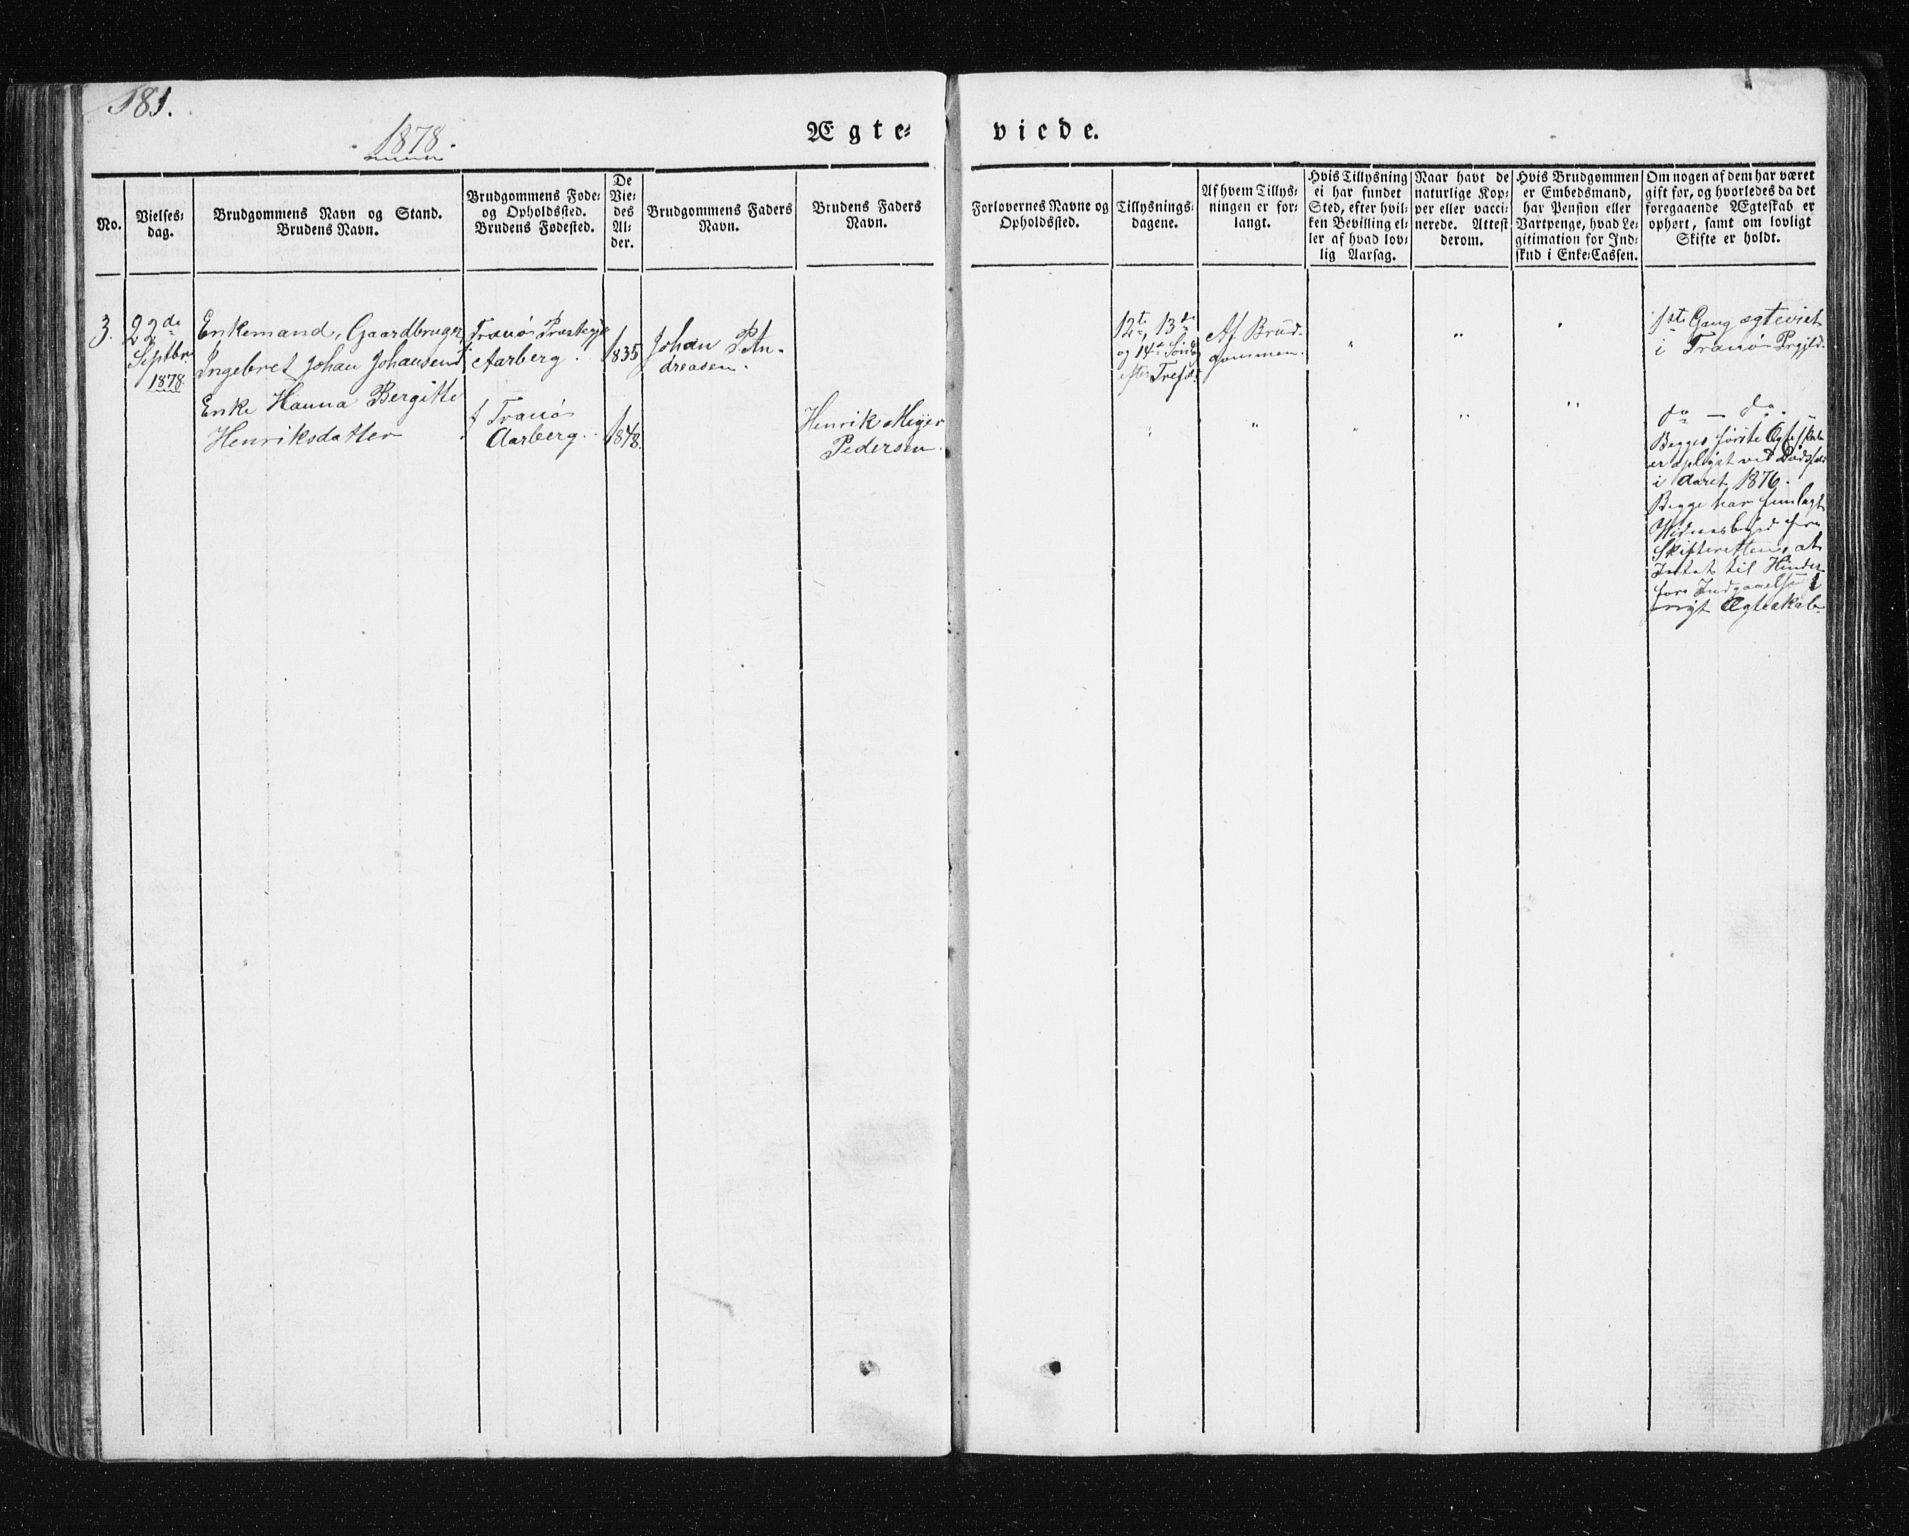 181.
1878.
Ægte-
viede.
No.
Vielses-
dag.
Brudgommens Navn og Stand.
Brudens Navn.
Brudgommens Føde-
og Opholdssted.
Brudens Fødested.
De
Vie-
des
Al-
der.
Brudgommens Faders
Navn.
Brudens Faders
Navn.
Forlovernes Navne og
Opholdssted.
Tillysnings-
dagene.
Af hvem Tillys-
ningen er for-
langt.
Hvis Tillysning
ei har fundet
Sted, efter hvil-
ken Bevilling el-
ler af hvad lov-
lig Aarsag.
Naar havt de
naturlige Kop-
per eller vacci-
nerede. Attest
derom.
Hvis Brudgommen
er Embedsmand,
har Pension eller
Vartpenge, hvad Le-
gitimation for Ind-
skud i Enke-Cassen.
Om nogen af dem har været
gift før, og hvorledes da det
foregaaende Ægteskab er
ophørt, samt om lovligt
Skifte er holdt.
3.
22de
Septbr
1878.
Enkemand, Gaardbruger
Ingebret Johan Johansen
Tranøs
Aarberg.
1835
Johan P. An-
dreasen.
12te, 13de
og 14de
efter Tref.
Af Brud-
gommen.
"
"
"
1ste Gang ægteviet
i Tranø Prgjld.
Enke Hanna Bergitte
Henriksdatter
Tranø
Aarberg.
1848.
Henrik Meyer
Pedersen.
"
"
"
"
"
do — do.
Begges første Ægteskab
er opløst ved Dødsfald
i Aaret 1876.
Begge har fremlagt
Vidnesbyrd fra
Skifteretten, at
Intet til Hinder
for Indgaaelse i
nyt Ægteskab